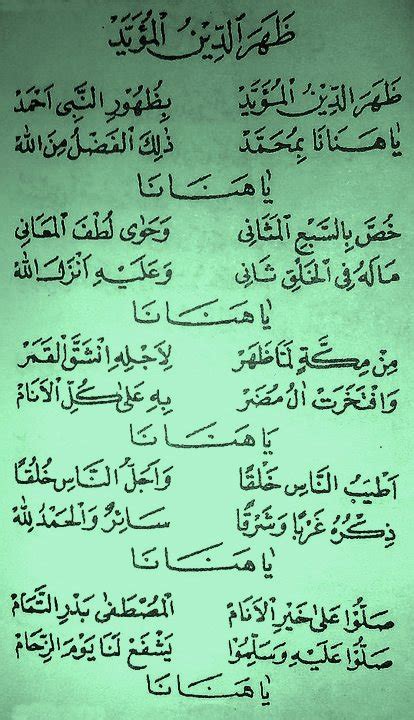 ظَهَرَ الدِّيْنُ الْمُؤَيَّدْ
ظَهَرَ الدِّيْنُ الْمُؤَيَّدْ بِظُهُورِ النَّبِى اَحْمَدْ
يَا هَنَانَا بِمُحَمَّدْ ذٰلِكَ الْفَضْلُ مِنَ اللهْ
يَا هَنَانَا
خُصَّ بِالسَّبْعِ الْمَثَانِى وَحَوٰى لُطْفَ الْمَعَانِى
مَالَهُ فِى الْخَلْقِ ثَانِى وَعَلَيْهِ اَنْزَلَ اللهْ
يَا هَنَانَا
مِنْ مِكَّةٍ لَمَّا ظَهَرْ لِاَجْلِهِ انْشَقَّ الْقَمَرْ
وَافْتَخَرَتْ اٰلُ مُضَرْ بِهِ عَلٰى كُلِّ الْاَنَامْ
يَا هَنَانَا
اَطْيَبُ النَّاسِ خَلْقًا وَاَجَلُّ النَّاسِ خُلُقًا
ذِكْرُهُ غَرْبًا وَشَرْقًا سَائِرٌ وَالْحَمْدُ لِلّٰهْ
يَا هَنَانَا
صَلُّوْا عَلٰى خَيْرِ الْاَنَامْ الْمُصْطَفٰى بَدْرِ التَّمَامْ
صَلُّوْا عَلَيْهِ وَسَلِّمُوْا يَشْفَعْ لَنَا يَوْمَ الزِّحَامْ
يَا هَنَانَا